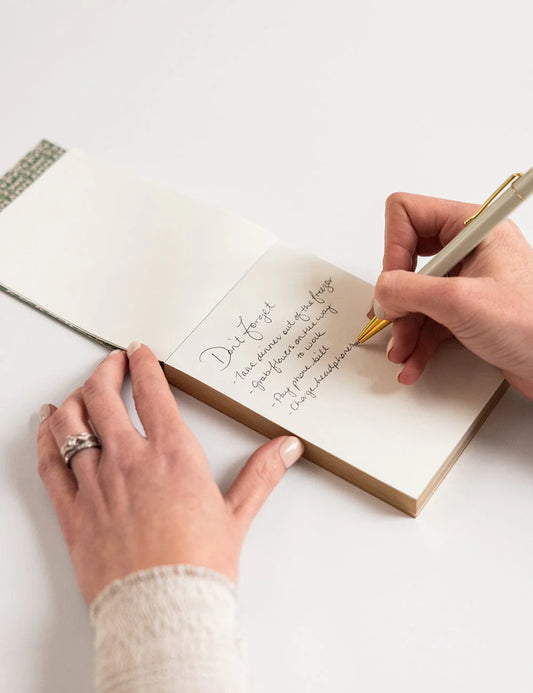 Don't Forget
- Take dinner out of the freezer
- Grab flowers on the way
to work
- Pay phone bill
- Charge headphones